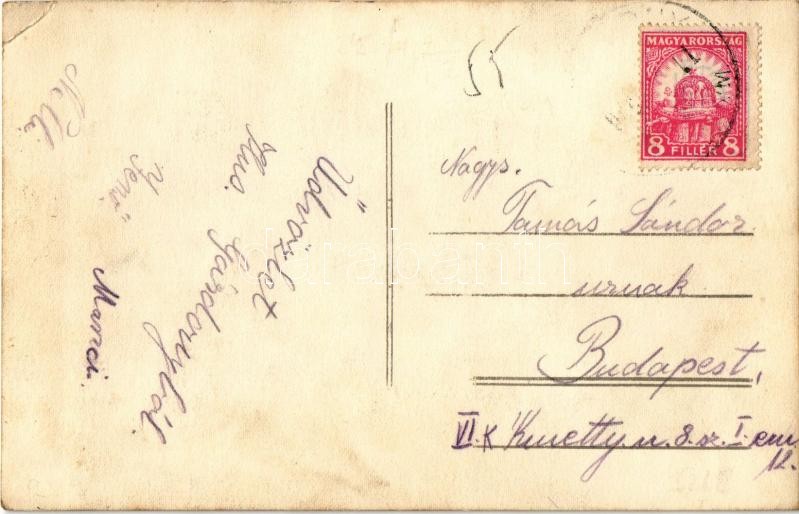 55
MAGYARORSZÁG
8 FILLÉR 8
Üdvözlet
Gárdonyból.
Nelli.
Jenő.
Manci.
Nagys.
Tamás Sándor
urnak
Budapest,
VI. K Kmetty u. 8. sz. I. em
12.